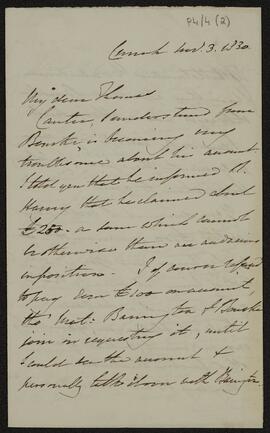 P4/4 (2)
Novr. 3. 1830
My dear Thomas
Canter, I understand from
Bourke, is becoming very
troublesome about his account.
I told you that he informed R.
Harry that he claimed about
£250 - a sum which cannot
be otherwise than an audacious
imposition. I of course refused
to pay him £100 on account,
tho' Barrington & Bourke
join in requesting it, until
I could see the account &
personally talk it over with Barrington